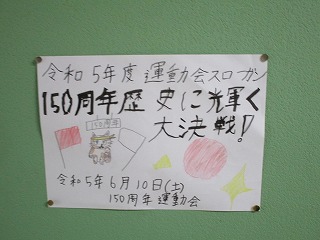 令和5年度 運動会スローガン
150周年歴史に輝く
大決戦!!
150周年
令和5年6月10日(土)
150周年運動会